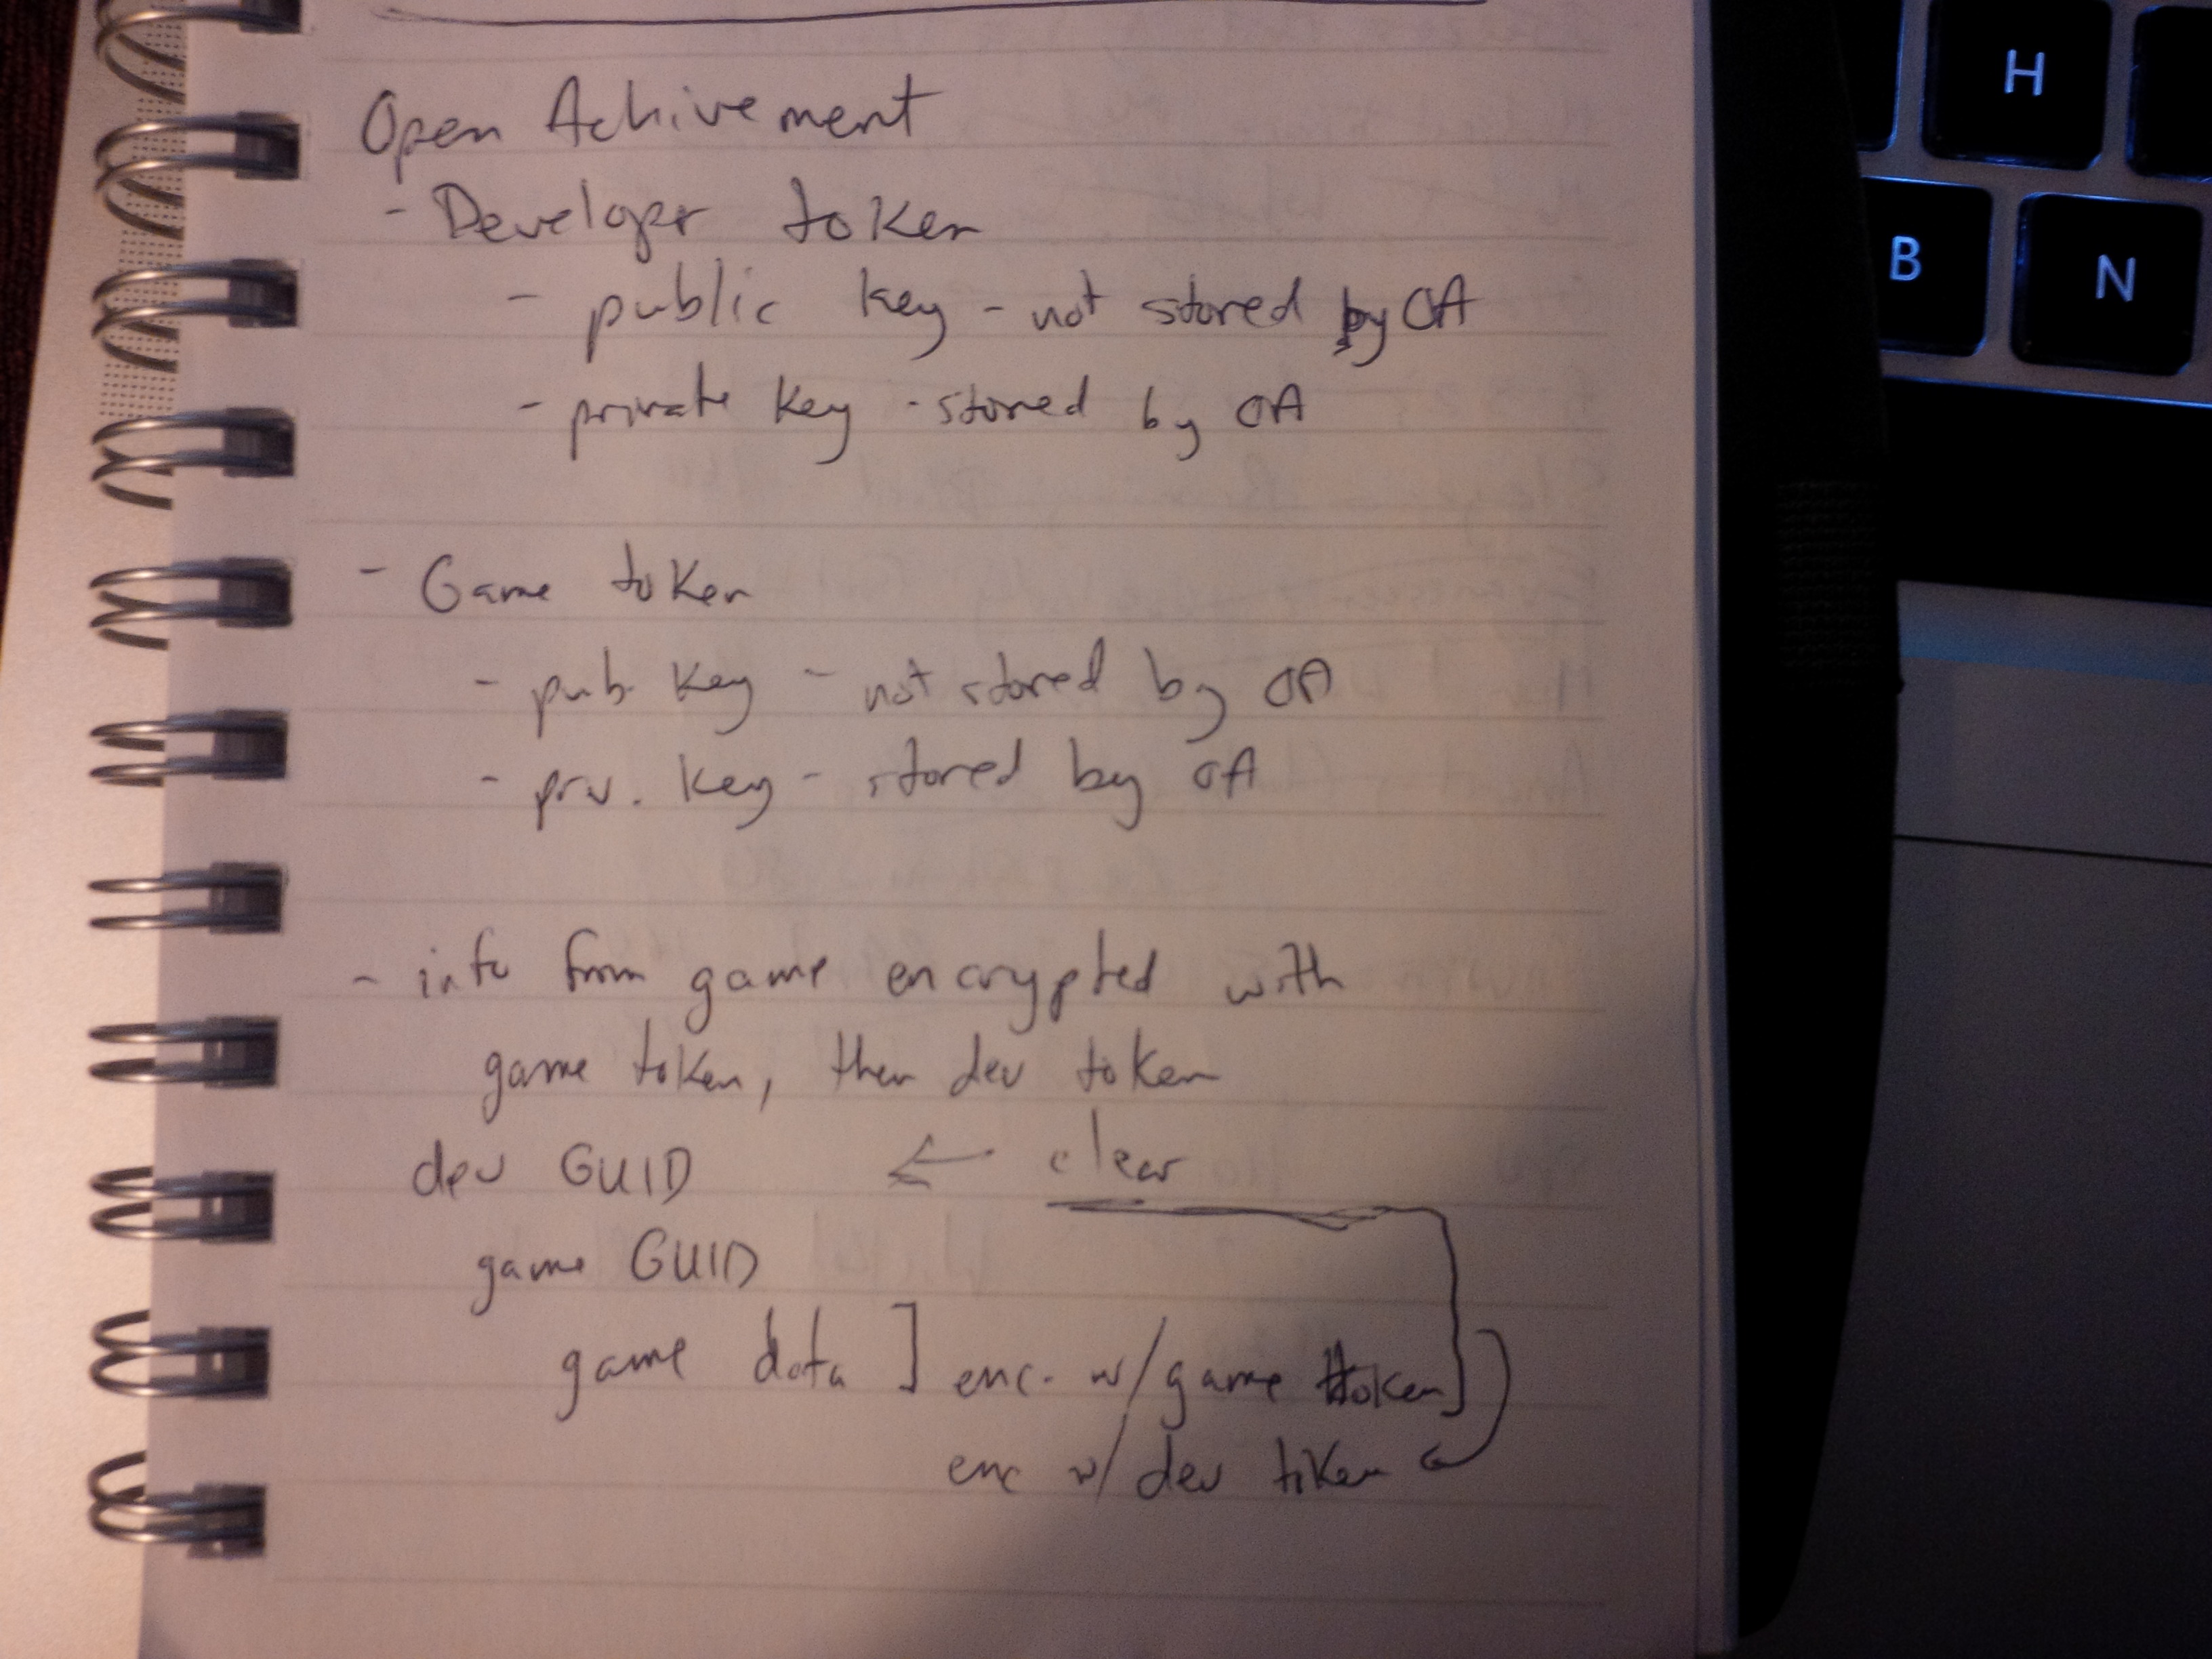 Open Achivement
- Developer token
- public key - not stored by OA
- private key - stored by OA
- Game token
- pub. key - not stored by OA
- priv. key - stored by OA
- info from game encrypted with
game token, then dev token
dev GUID ← clear
game GUID
game data ] enc. w/ game token ]
enc w/ dev token
H
B
N